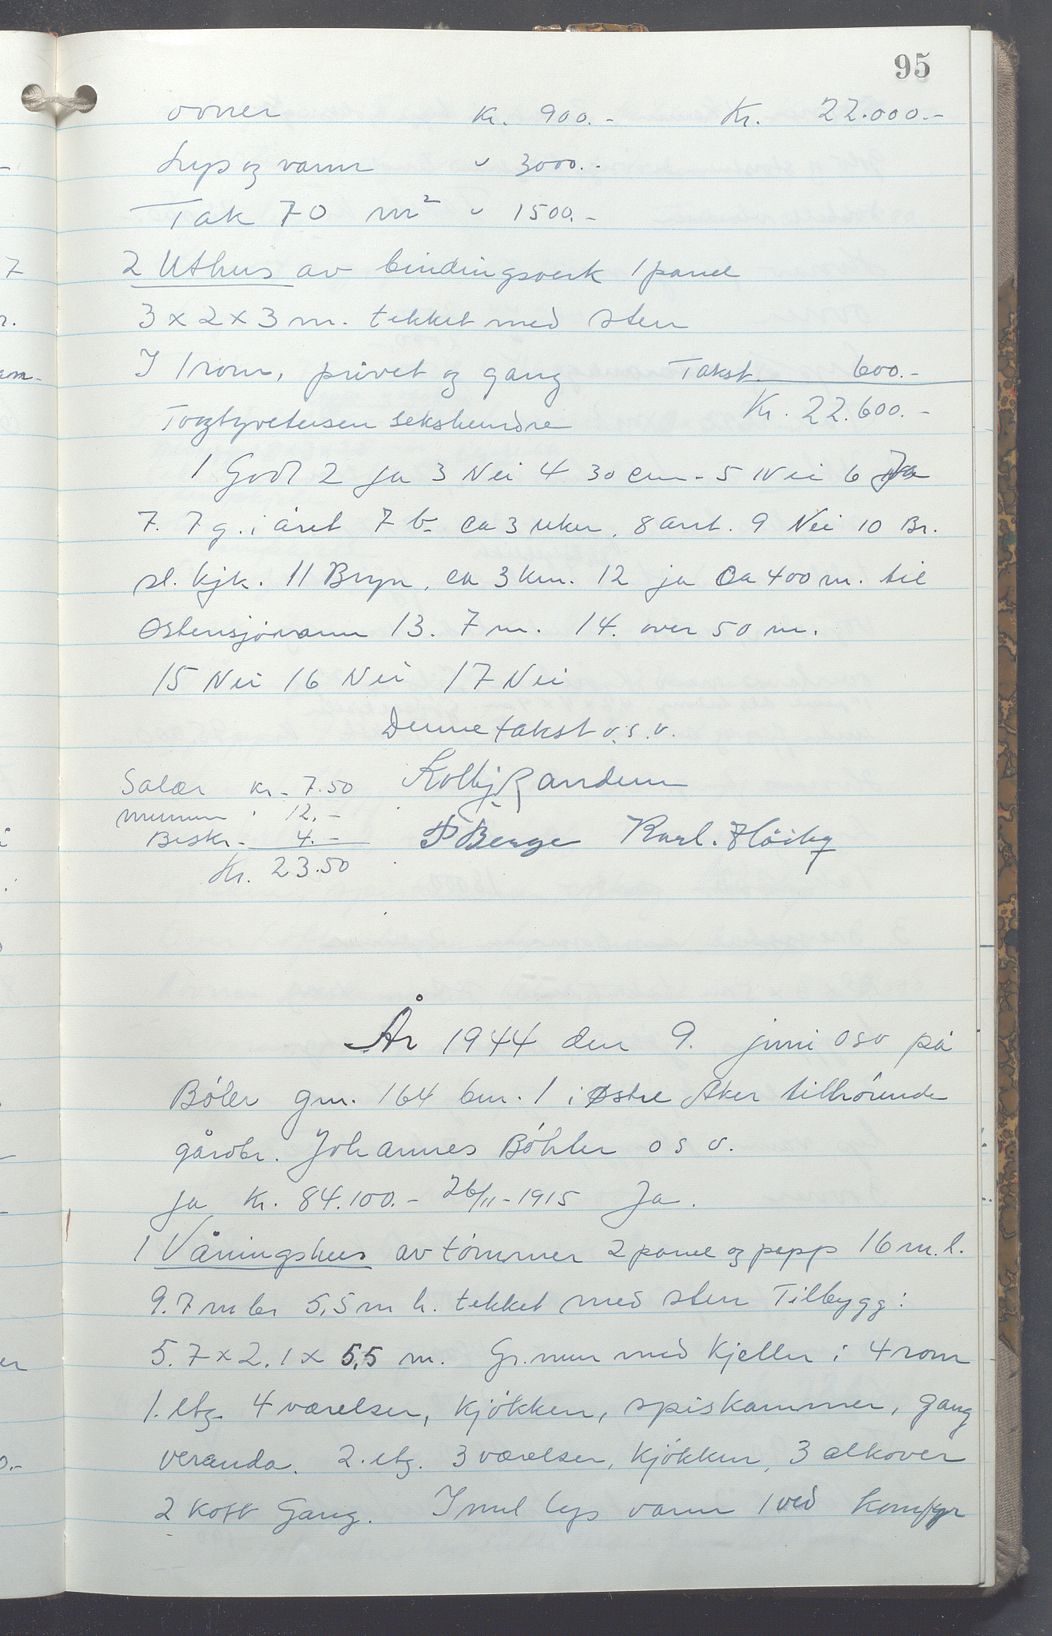 95
ovner Kr. 900.- Kr. 22.000.-
Lys og vann " 3000.-
Tak 70 m² " 1500.-
2 Uthus av bindingsverk 1 panel
3 x 2 x 3 m. tekket med sten
I 1 rom, privet og gang Takst 600.-
Togtyvetusen sekshundre Kr. 22.600.-
1 Godt 2 Ja 3 Nei 4 30 cm - 5 Nei 6 Ja
7. 7 g. i året 7 b. ca 3 uker, 8 aut. 9 Nei 10 Br.
sl. kjk. 11 Bryn, ca 3 km. 12 ja Ca 400 m. til
Østensjøvann 13. 7 m. 14. over 50 m.
15 Nei 16 Nei 17 Nei
Denne takst o.s.v.
Salær Kr. 7.50 Kolbj Randem
12.-
Beskr. 4.- P Berge Karl. Fløiby
Kr. 23.50
År 1944 den 9. juni osv på
Bøler gnr. 164 bnr. 1 i Østre Aker tilhørende
gårdbr. Johannes Böhler o s v.
Ja Kr. 84.100.- 26/11-1915 Ja.
1 Våningshus av tömmer 2 panel og papp 16 m. l.
9.7 m br 5,5 m h. tekket med sten Tilbygg:
5.7 x 2.1 x 5,5 m. Gr. mur med Kjeller i 4 rom
1. etg. 4 værelser, Kjökken, spiskammer, gang
veranda. 2. etg. 3 værelser, Kjökken, 3 alkover
2 Kott Gang. Innl lys vann 1 ved Komfyr